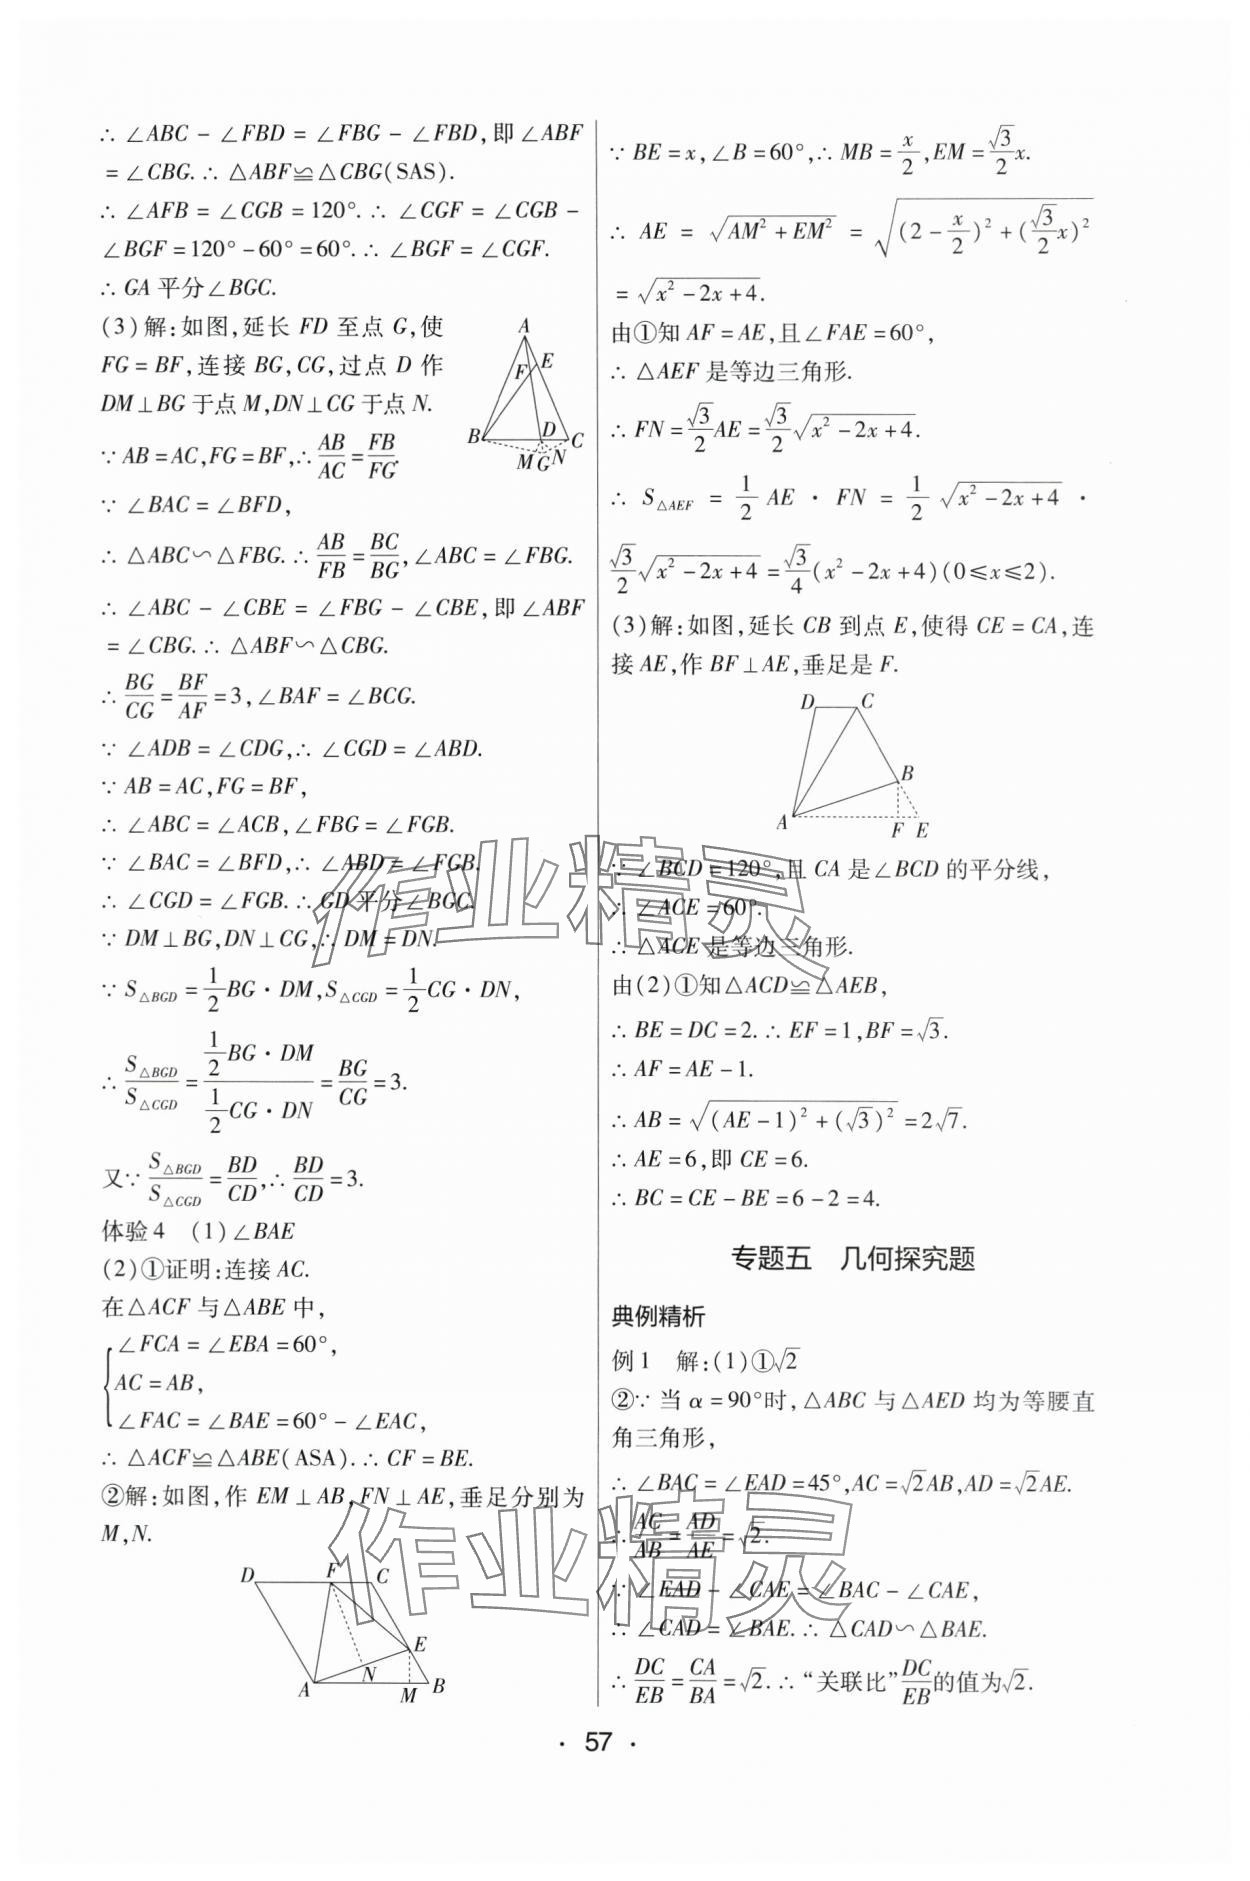 ∴ ∠ABC - ∠FBD = ∠FBG - ∠FBD,即∠ABF
= ∠CBG. ∴ △ABF≌△CBG(SAS).
∴ ∠AFB = ∠CGB = 120°. ∴ ∠CGF = ∠CGB -
∠BGF = 120° - 60° = 60°. ∴ ∠BGF = ∠CGF.
∴ GA 平分∠BGC.
(3)解:如图,延长 FD 至点 G,使
FG = BF,连接 BG,CG,过点 D 作
DM⊥BG 于点 M,DN⊥CG 于点 N.
A
F E
B D C
M G N
∵ AB = AC,FG = BF,∴ AB/AC = FB/FG.
∵ ∠BAC = ∠BFD,
∴ △ABC∽△FBG. ∴ AB/FB = BC/BG,∠ABC = ∠FBG.
∴ ∠ABC - ∠CBE = ∠FBG - ∠CBE,即∠ABF
= ∠CBG. ∴ △ABF∽△CBG.
∴ BG/CG = BF/AF = 3,∠BAF = ∠BCG.
∵ ∠ADB = ∠CDG,∴ ∠CGD = ∠ABD.
∵ AB = AC,FG = BF,
∴ ∠ABC = ∠ACB,∠FBG = ∠FGB.
∵ ∠BAC = ∠BFD,∴ ∠ABD = ∠FGB.
∴ ∠CGD = ∠FGB. ∴ GD 平分∠BGC.
∵ DM⊥BG,DN⊥CG,∴ DM = DN.
∵ S△BGD = 1/2 BG·DM,S△CGD = 1/2 CG·DN,
∴ S△BGD/S△CGD = (1/2 BG·DM)/(1/2 CG·DN) = BG/CG = 3.
又∵ S△BGD/S△CGD = BD/CD,∴ BD/CD = 3.
体验4 (1)∠BAE
(2)①证明:连接 AC.
在△ACF 与△ABE 中,
∠FCA = ∠EBA = 60°,
AC = AB,
∠FAC = ∠BAE = 60° - ∠EAC,
∴ △ACF≌△ABE(ASA). ∴ CF = BE.
②解:如图,作 EM⊥AB,FN⊥AE,垂足分别为
M,N.
D F C
E
N
A M B
∵ BE = x,∠B = 60°,∴ MB = x/2,EM = √3/2 x.
∴ AE = √(AM² + EM²) = √((2 - x/2)² + (√3/2 x)²)
= √(x² - 2x + 4).
由①知 AF = AE,且∠FAE = 60°,
∴ △AEF 是等边三角形.
∴ FN = √3/2 AE = √3/2 √(x² - 2x + 4).
∴ S△AEF = 1/2 AE · FN = 1/2 √(x² - 2x + 4) ·
√3/2 √(x² - 2x + 4) = √3/4 (x² - 2x + 4)(0≤x≤2).
(3)解:如图,延长 CB 到点 E,使得 CE = CA,连
接 AE,作 BF⊥AE,垂足是 F.
D C
B
A F E
∵ ∠BCD = 120°,且 CA 是∠BCD 的平分线,
∴ ∠ACE = 60°.
∴ △ACE 是等边三角形.
由(2)①知△ACD≌△AEB,
∴ BE = DC = 2. ∴ EF = 1,BF = √3.
∴ AF = AE - 1.
∴ AB = √((AE - 1)² + (√3)²) = 2√7.
∴ AE = 6,即 CE = 6.
∴ BC = CE - BE = 6 - 2 = 4.
专题五 几何探究题
典例精析
例1 解:(1)①√2
②∵ 当 α = 90°时,△ABC 与△AED 均为等腰直
角三角形,
∴ ∠BAC = ∠EAD = 45°,AC = √2AB,AD = √2AE.
∴ AC/AB = AD/AE = √2.
∵ ∠EAD - ∠CAE = ∠BAC - ∠CAE,
∴ ∠CAD = ∠BAE. ∴ △CAD∽△BAE.
∴ DC/EB = CA/BA = √2. ∴ “关联比”DC/EB的值为√2.
· 57 ·
作业精灵
作业精灵